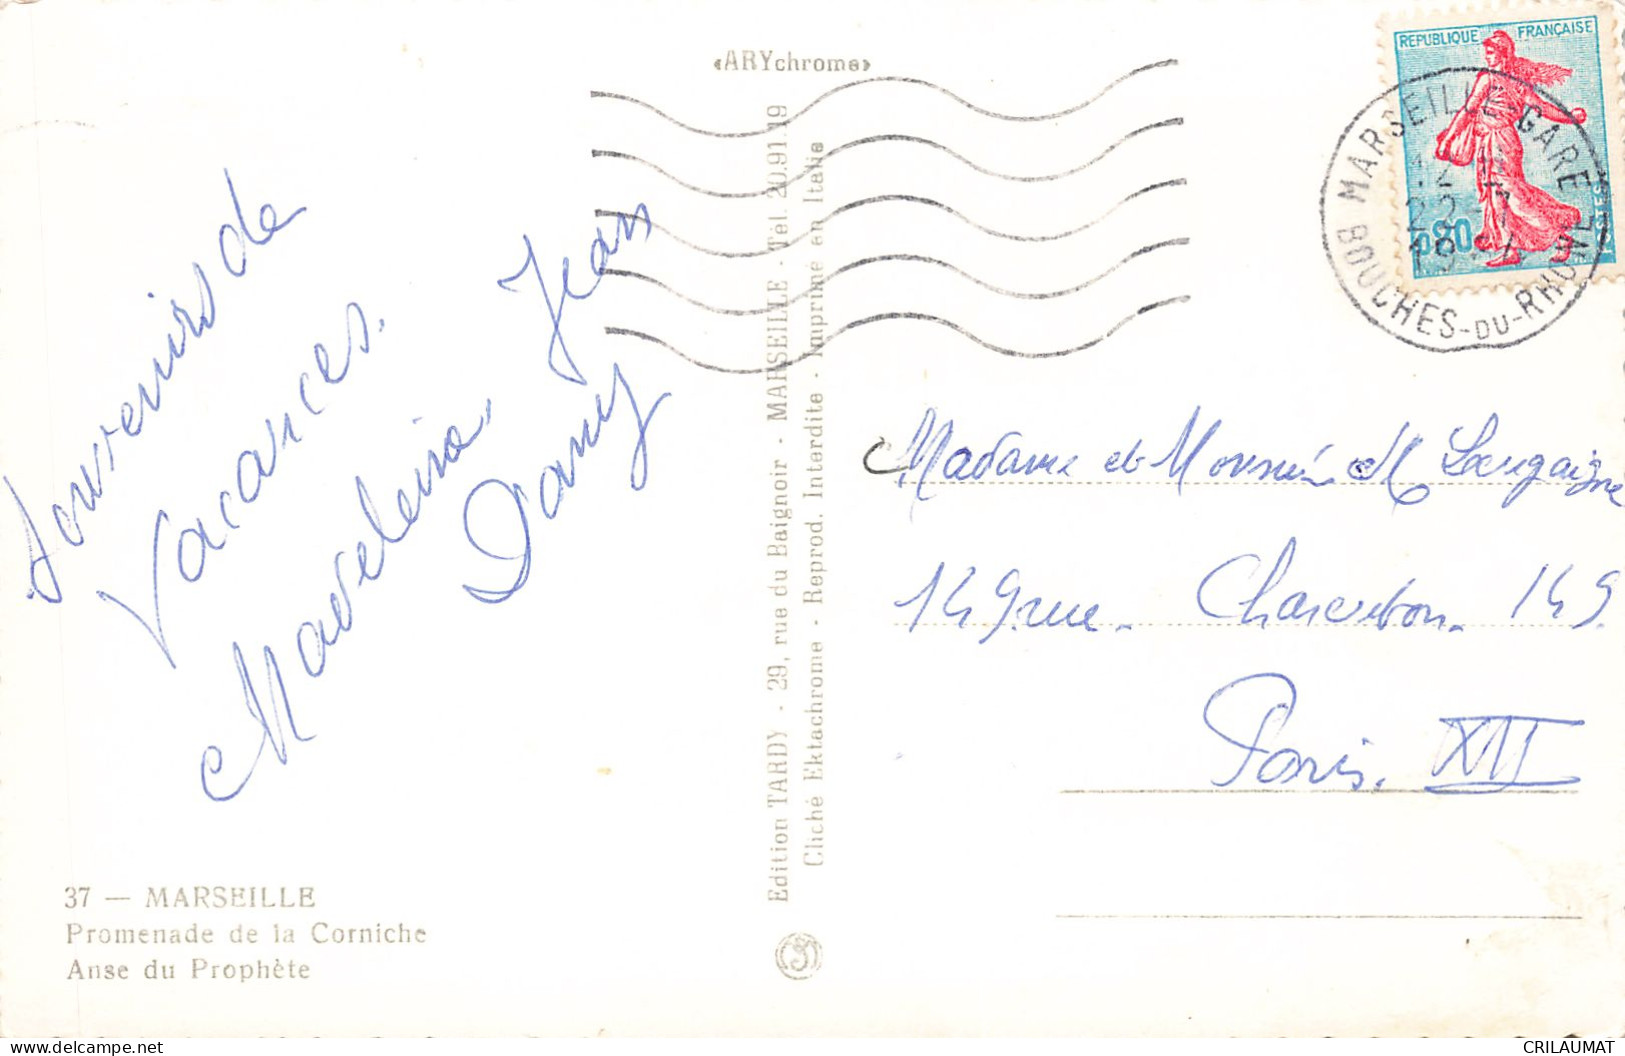 «ARYchrome»
REPUBLIQUE FRANÇAISE
0,20
MARSEILLE-GARE
22-7
BOUCHES-DU-RHONE
Souvenirs de
Vacances.
Madeleine, Jean
Dany
Edition TARDY - 29, rue du Baignoir - MARSEILLE - Tel. 20.91.19
Cliché Ektachrome - Reprod. Interdite - Imprimé en Italie
Madame et Monsieur M
149 rue Charenton 149
Paris. XII
37 — MARSEILLE
Promenade de la Corniche
Anse du Prophète
delcampe.net
CRILAUMAT